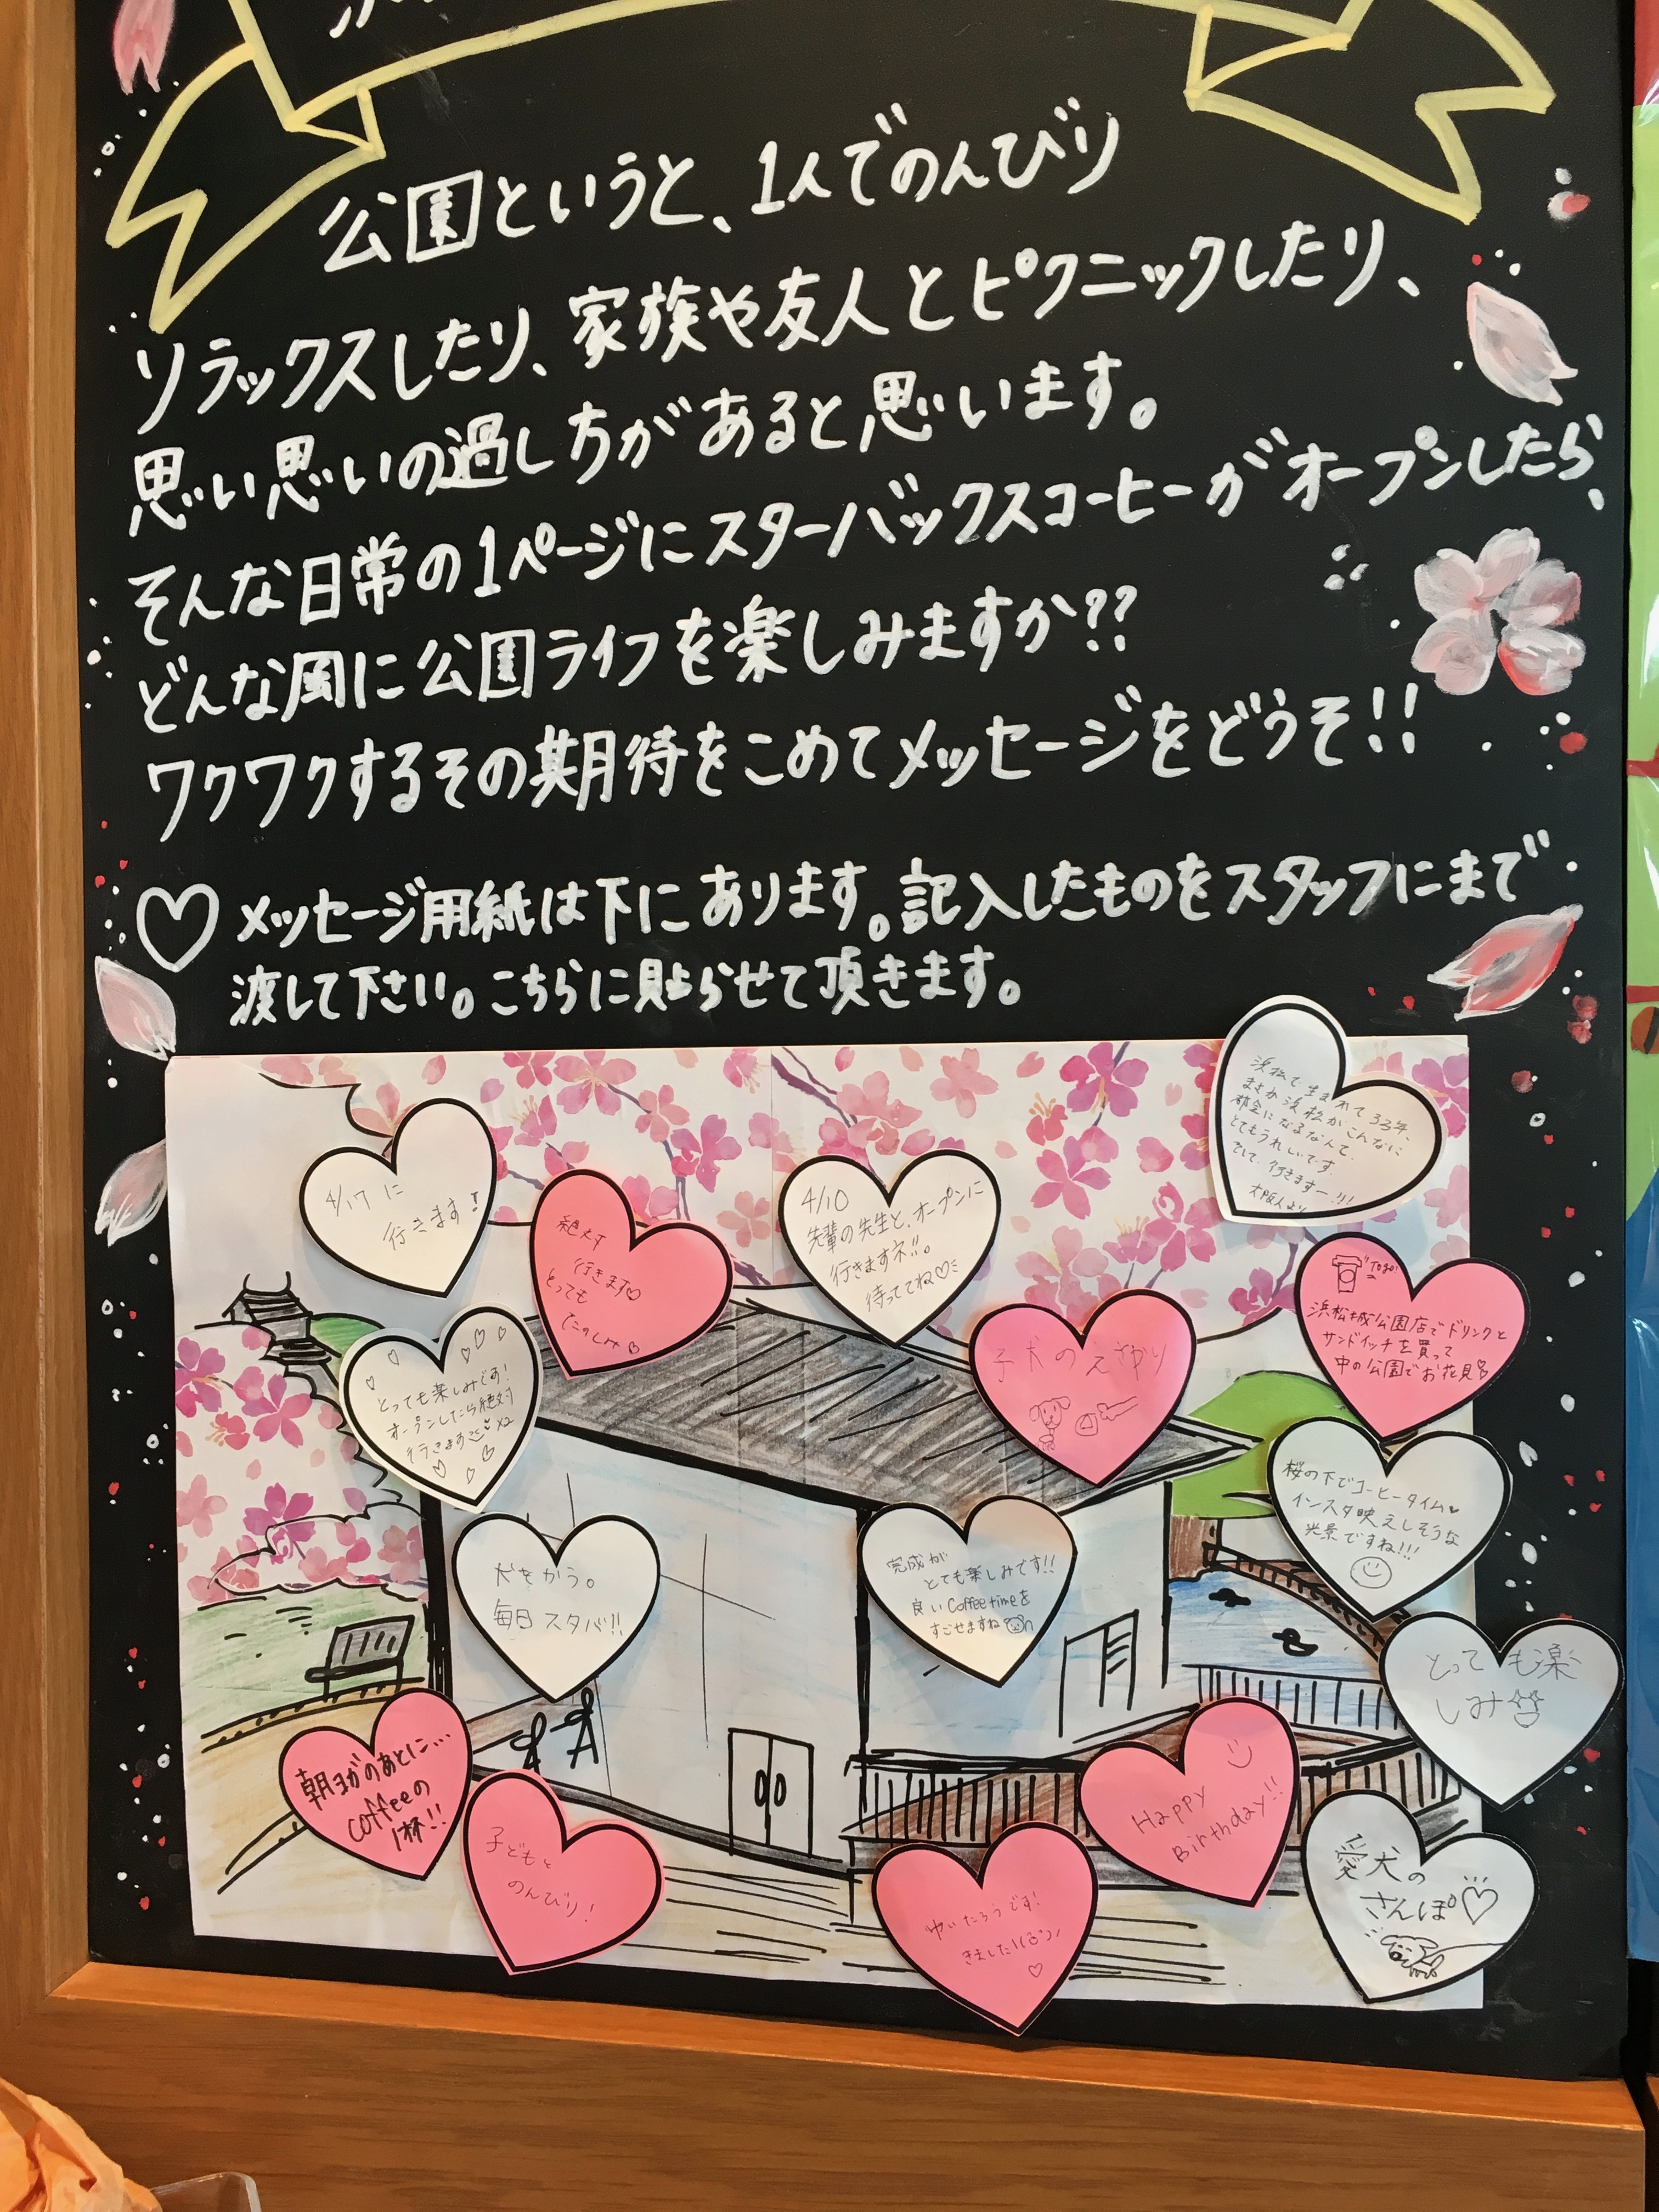 公園というと、1人でのんびり
リラックスしたり、家族や友人とピクニックしたり、
思い思いの過し方があると思います。
そんな日常の1ページにスターバックスコーヒーがオープンしたら、
どんな風に公園ライフを楽しみますか??
ワクワクするその期待をこめてメッセージをどうぞ!!
♡メッセージ用紙は下にあります。記入したものをスタッフにまで
渡して下さい。こちらに貼らせて頂きます。
浜松で生まれて33年、
まさか浜松がこんなに
都会になるなんて、
とてもうれしいです。
行きますー!!!
大阪人より
4/17に
行きます!
絶対
行きます♡
とっても
たのしみ♡
4/10
先輩の先生と、オープンに
行きますネ!!。
待っててね♡
to go
浜松城公園店でドリンクと
サンドイッチを買って
中の公園でお花見
とっても楽しみです!
オープンしたら絶対
行きます
×2
子犬のえさやり
桜の下でコーヒータイム♥
インスタ映えしそうな
光景ですね!!!
犬をかう。
毎日スタバ!!
完成が
とても楽しみです!!
良いCoffee timeを
すごせますね
とっても楽
しみ
朝ヨガのあとに…
coffeeの
1杯!!
子どもと
のんびり!
Happy
Birthday!!
ゆいたろうです!
きました!
愛犬の
さんぽ♡